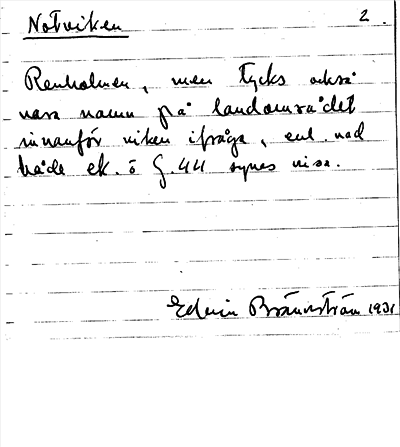 Notviken 2.
Renholmen, men tycks också
vara namn på landområdet
innanför viken ifråga, enl. vad
både ek. o G.44 synes visa.
Edvin Brännström 1931